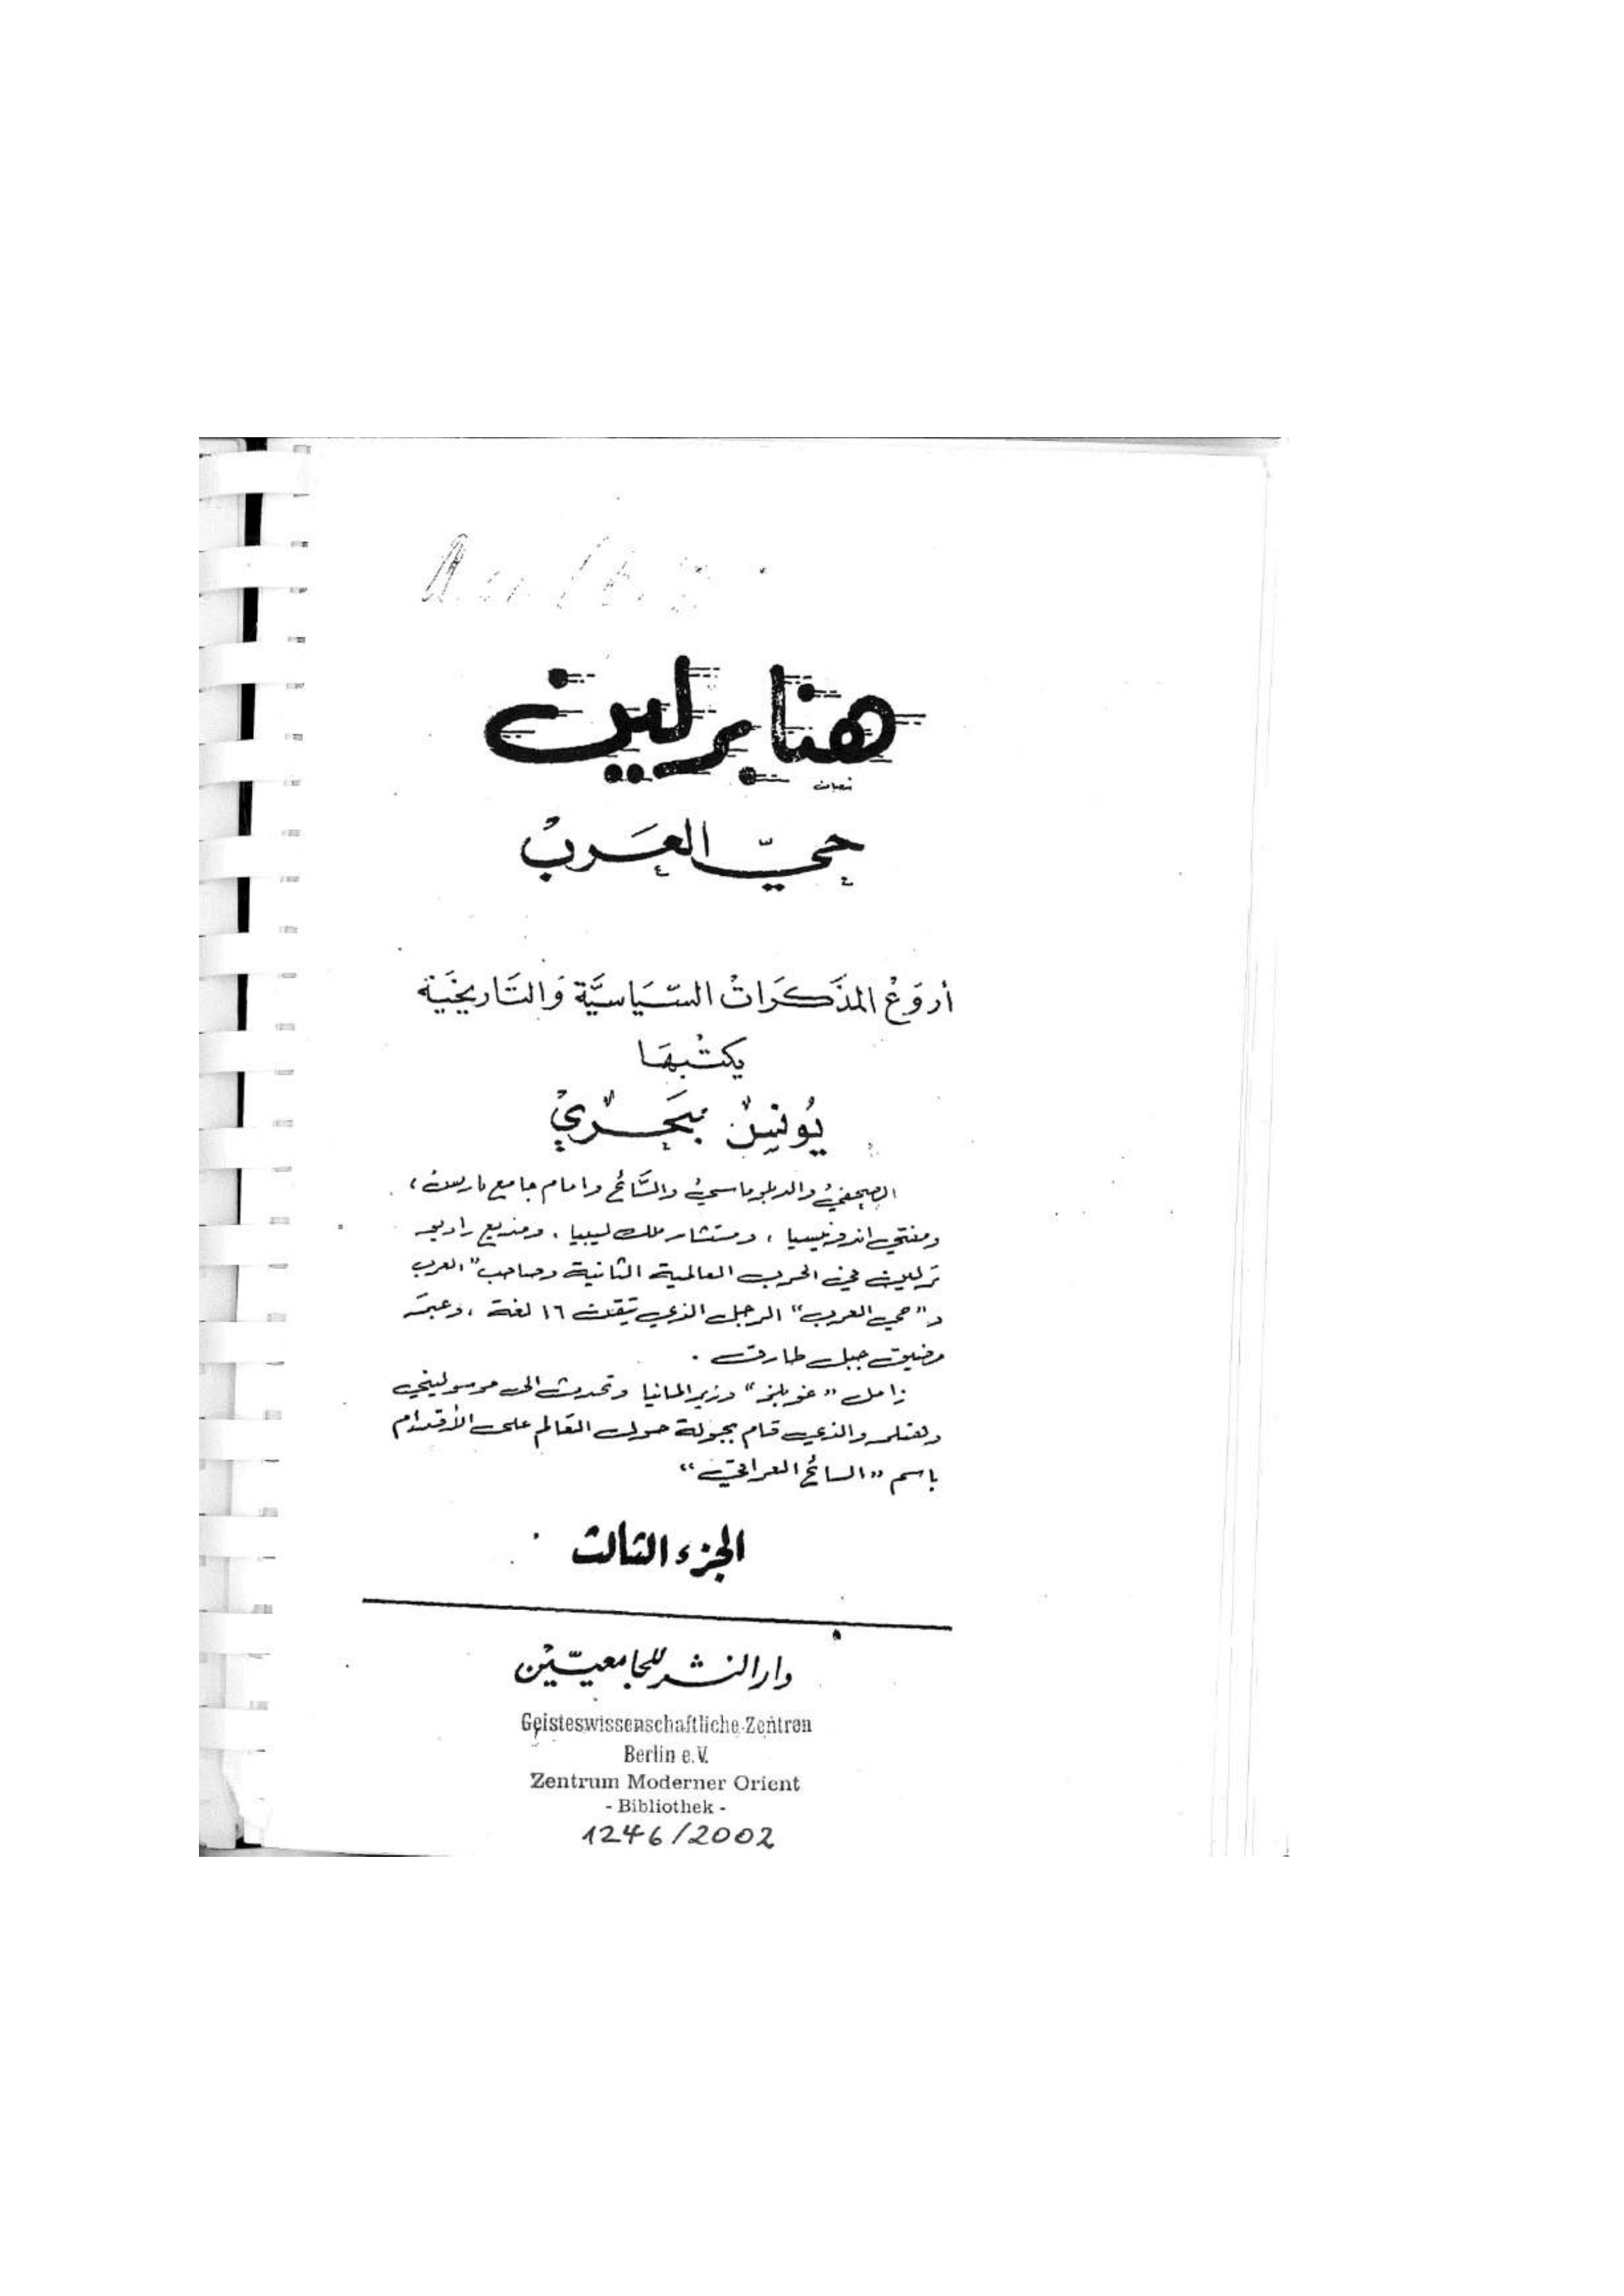 هنا برلين
حيّ العرب
أروع المذكرات السياسية والتاريخية
يكتبها
يونس بحري
الصحفي والدبلوماسي والسائح وامام جامع باريس،
ومفتي اندونيسيا، ومستشار ملك ليبيا، ومذيع راديو
برلين في الحرب العالمية الثانية وصاحب "العرب
و"حي العرب" الرجل الذي يتقن ١٦ لغة، وعبر
مضيق جبل طارق.
زامل "غوبلز" وزير المانيا وتحدث الى موسوليني
وهتلر والذي قام بجولة حول العالم على الأقدام
باسم "السائح العراقي"
الجزء الثالث
دار النشر للجامعيين
Geisteswissenschaftliche Zentren
Berlin e.V.
Zentrum Moderner Orient
- Bibliothek -
1246/2002